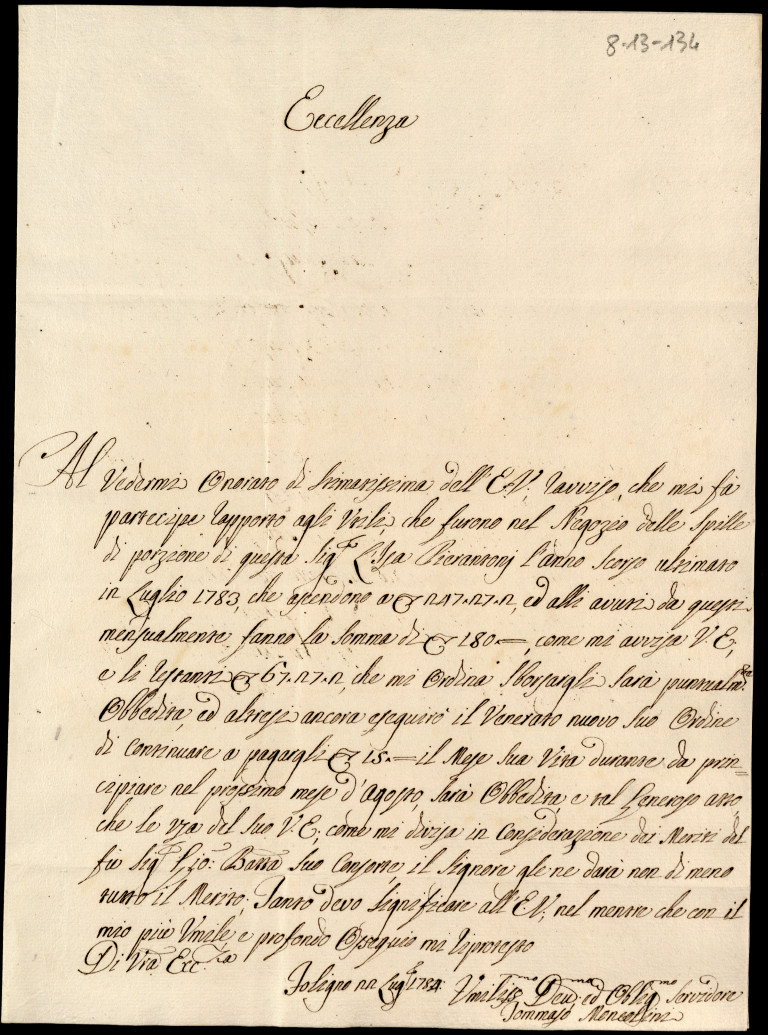 8-13-134
Eccellenza
Al Vedermi Onorato di Stimatissima dell'E.V., ravviso, che mi fà
partecipe rapporto agli Utili, che furono nel Negozio delle Spille
di porzione di questa Sigra Pierantonj l'anno scorso ultimato
in Luglio 1783, che ascendono a 247.27.2, ed alli avuti da questi
mensualmente fanno la somma di 180.—, come mi avvisa V.E.,
e li restanti 67.27.2, che mi Ordina Sborsargli sarà puntualmte
Obbedita, ed altresi ancora eseguirò il Venerato nuovo suo Ordine
di continuare a pagargli 15.— il Mese sua Vita durante da prin=
cipiare nel prossimo mese d'Agosto, sarà Obbedita e tal Generoso atto
che le usa del suo V.E., come mi divisa in Considerazione dei Meriti del
fù Sigr Gio: Batta suo Consorte il Signore gle ne darà non di meno
tutto il Merito; Tanto devo significare all'E.V., nel mentre che con il
mio più Umile, e profondo Ossequio mi riprotesto
Di Vra Eccza
Foligno 22 Lugl 1784.
Umiliss Devmo ed Obligmo Servidore
Tommaso